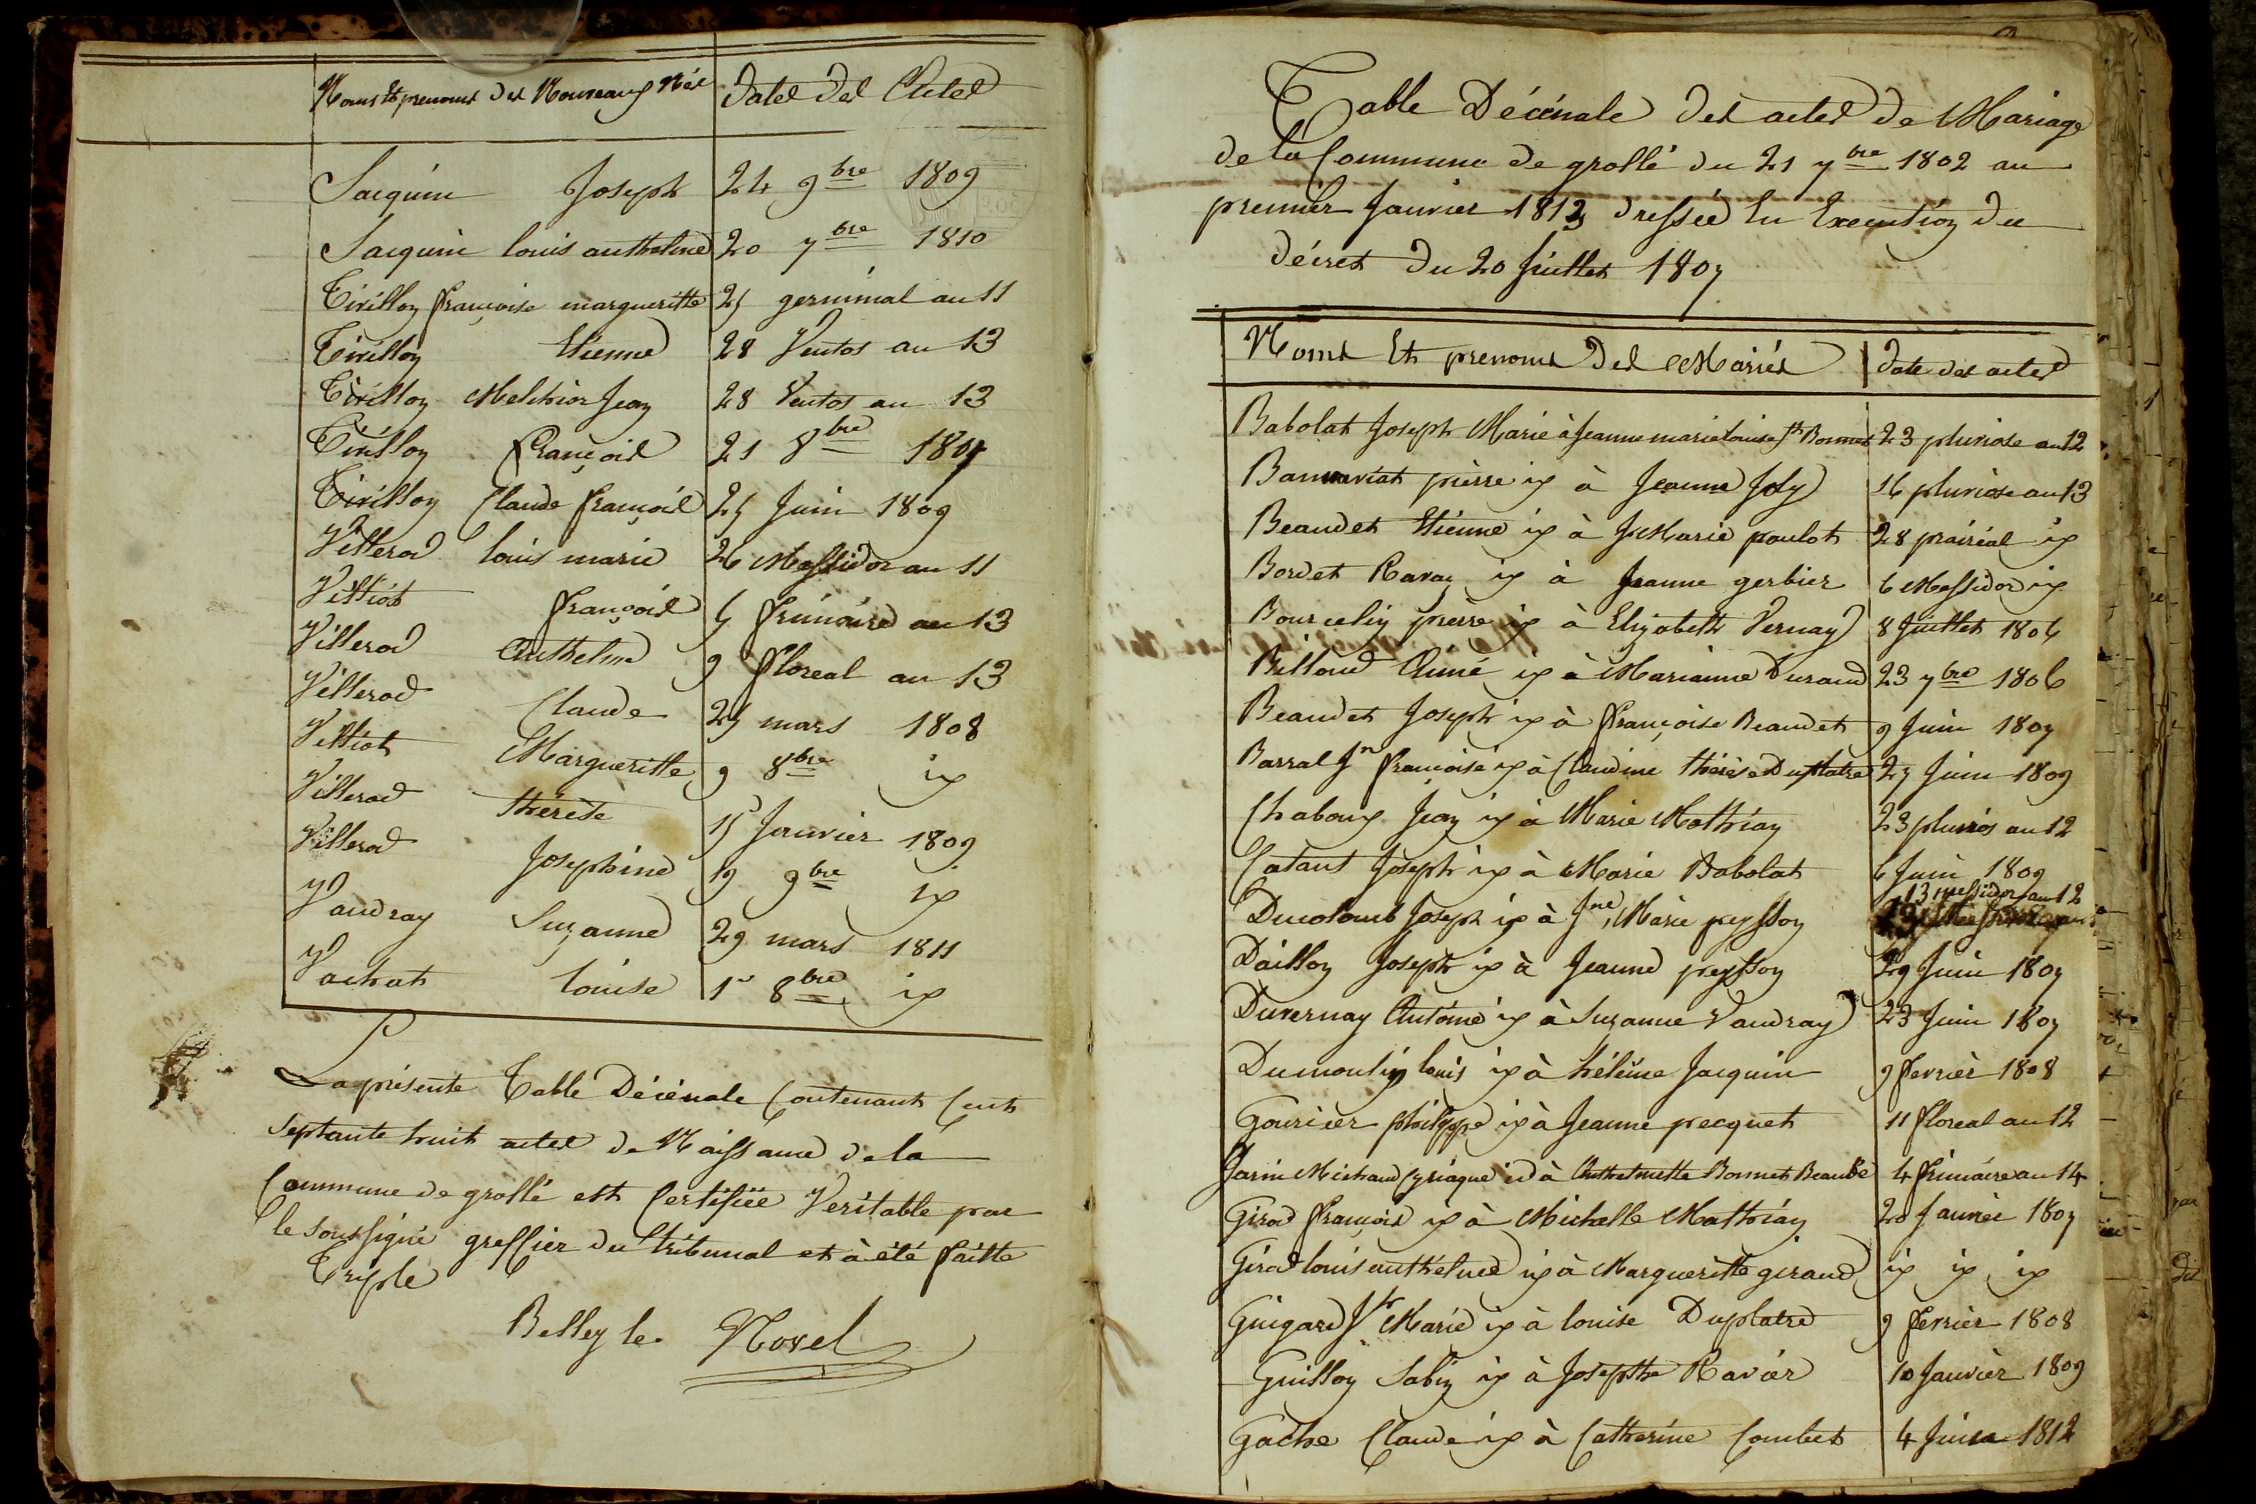 Noms Et prenoms des Nouveaux Nés Dates des Actes
Jacquin Joseph 24 9bre 1809
Jacquin louis anthelme 20 7bre 1810
Tirillon françoise margueritte 25 germinal an 11
Tirillon Etienne 28 Ventos an 13
Tirillon Melchior Jean 28 Ventos an 13
Tirillon François 21 8bre 1807
Tirillon Claude françois 25 Juin 1809
Villerod louis marie 26 Messidor an 11
Villiot françois 5 frimaire an 13
Villerod Anthelme 9 floreal an 13
Villerod Claude 25 mars 1808
Villiot Margueritte 9 8bre ix
Villerod thérèse 15 Janvier 1809
Villerod Josephine 19 9bre ix
Vaudray Suzanne 29 mars 1811
Vachat louise 1r 8bre ix
La présente Table Décénale Contenant Cent
Septante huit actes de Naissance de la
Commune de grollé est Certifiée Veritable par
le Soussigné greffier du tribunal et à été faitte
Triple
Belley le Novel
Table Décénale des actes de Mariage
de la Commune de grollé du 21 7bre 1802 au
premier Janvier 1813 dressée En Execution du
décret du 20 Juillet 1807
Noms Et prenoms des Mariés Date des actes
Babolat Joseph Marié à Jeanne marie louise Jh Bonnet 23 pluviose an 12
Bannaviat pierre ix à Jeanne Joly 16 pluviose an 13
Beaudet Etienne ix à J Marie poulot 28 prairéal ix
Bordet Ravaz ix à Jeanne gerbier 6 Messidor ix
Bourcelin pierre ix à Elizabeth Vernay 8 Juillet 1806
Billoud Aimé ix à Marianne Durand 23 7bre 1806
Beaudet Joseph ix à françoise Beaudet 9 Juin 1807
Barral Jn françoise ix à Claudine thérèse Duplatre 27 Juin 1809
Chaboux Jean ix à Marie Mathian 23 pluvios an 12
Catant Joseph ix à Marie Babolat 6 Juin 1809
Ducolomb Joseph ix à Jne Marie peysson 13 messidor an 12
Daillon Joseph ix à Jeanne peysson 29 Juin 1807
Duvernay Antoine ix à Suzanne Vaudray 23 Juin 1807
Dumoulin louis ix à hélème Jacquin 9 fevrier 1808
Gourier philippe ix à Jeanne pecquet 11 floreal an 12
Garin Michaud Cyriaque id à Anthelmette Bonnet Beaubé 4 frimaire an 14
Girod françois ix à Michelle Mathian 20 Janvier 1807
Girod louis anthelme ix à Margueritte giraud ix ix ix
Guigard Jh Marie ix à louise Duplatre 9 fevrier 1808
Guillon Sabin ix à Josephte Ravier 10 Janvier 1809
Gache Claude ix à Catherine Combet 4 Juin 1812